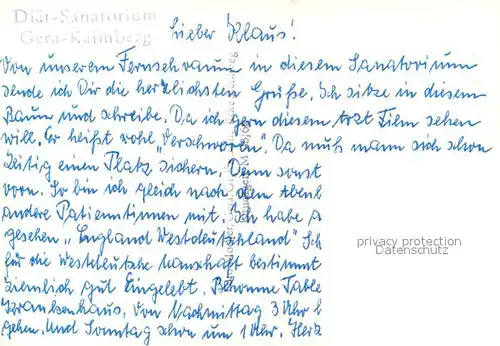 Diät-Sanatorium
Gera-Kaimberg
Lieber Klaus!
Von unserem Fernsehraum in diesem Sanatorium
sende ich Dir die herzlichsten Grüße. Ich sitze in diesem
Raum und schreibe. Da ich gern diesem Arzt Film sehen
will. Er heißt wohl „Verschworen". Da muß mann sich schon
Zeitig einen Platz sichern. Denn sonst
vorn. So bin ich gleich nach dem Abend
andere Patientinnen mit. Ich habe a
gesehen „England Westdeutschland" Ich
für die Westdeutsche Manschaft bestimmt
Ziemlich gut Eingelebt. Bekomme Table
Krankenhaus. Von Nachmittag 3 Uhr b
gehen. Und Sonntag schon um 1 Uhr. Herz
privacy protection
Datenschutz